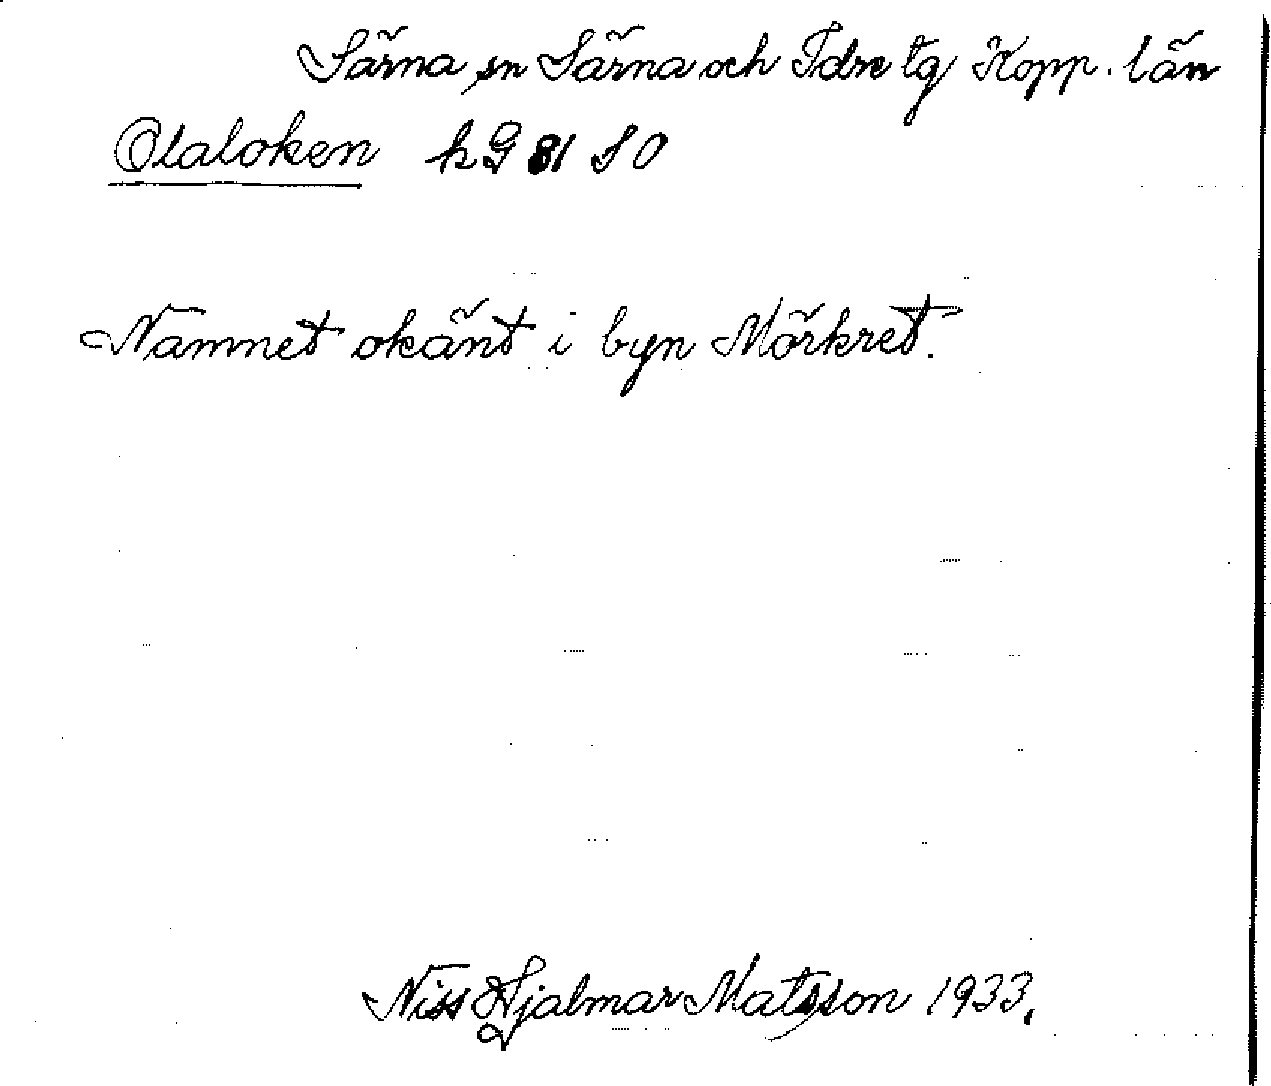 Särna sn Särna och Idre tg Kopp. län
Olaloken kG 81 SO
Namnet okänt i byn Mörkret.
Niss Hjalmar Matsson 1933.